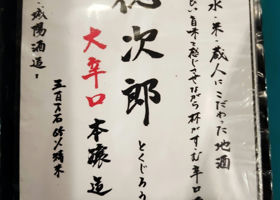 水・米・蔵人にこだわった地酒
旨味を感じさせながら杯がすすむ辛口
徳次郎
とくじろう
大辛口 本醸造
五百万石 65%精米
城陽酒造